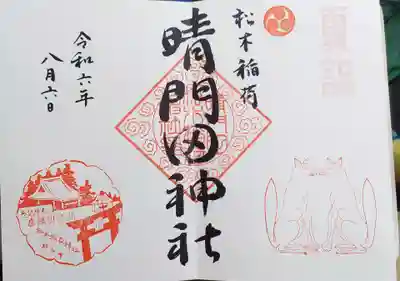 松木稲荷
晴門田神社
令和六年
八月六日